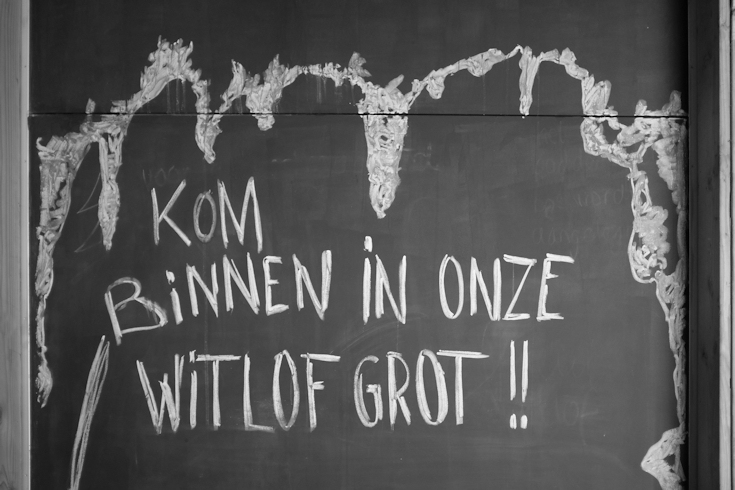 KOM
BiNNEN iN ONZE
WiTLOF GROT !!